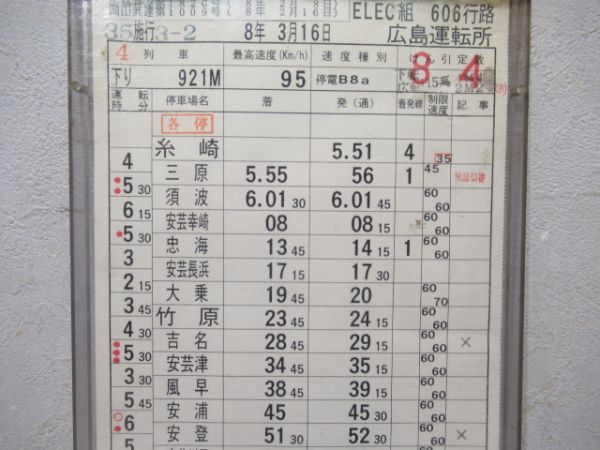 ELEC組 606行路
35施行3-2 8年 3月16日 広島運転所
4 列車 最高速度(Km/h) 速度種別 けん引定数
下り 921M 95 停電B8a 8 4
運転時分 停車場名 着 発(通) 着発線 制限速度 記事
各停
糸崎 5.51 4 35
4
三原 5.55 56 1 45
5 30
須波 6.01 30 6.01 45 60 60
6 15
安芸幸崎 08 08 15 60
5 30
忠海 13 45 14 15 1 60 60
3
安芸長浜 17 15 17 30
2 15
大乗 19 45 20 60 70
3 45
竹原 23 45 24 15
4 30
吉名 28 45 29 15 60 60 ×
5 30
安芸津 34 45 35 15 60 60
3 30
風早 38 45 39 15 60 60
5 45
安浦 45 45 30 60 60
6
安登 51 30 52 30 60 60 ×
5